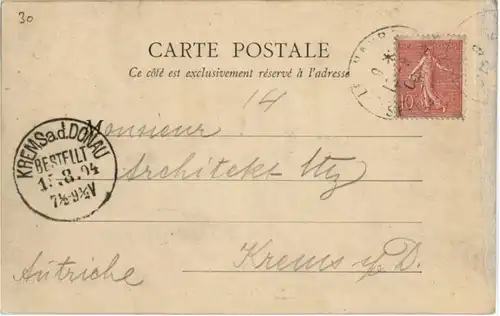 30
CARTE POSTALE
Ce côté est exclusivement réservé à l'adresse
10
14
Monsieur
KREMS a.d. DONAU
BESTELLT
8.04
7½-9½V
Architekt Utz
Krems a/D.
Autriche